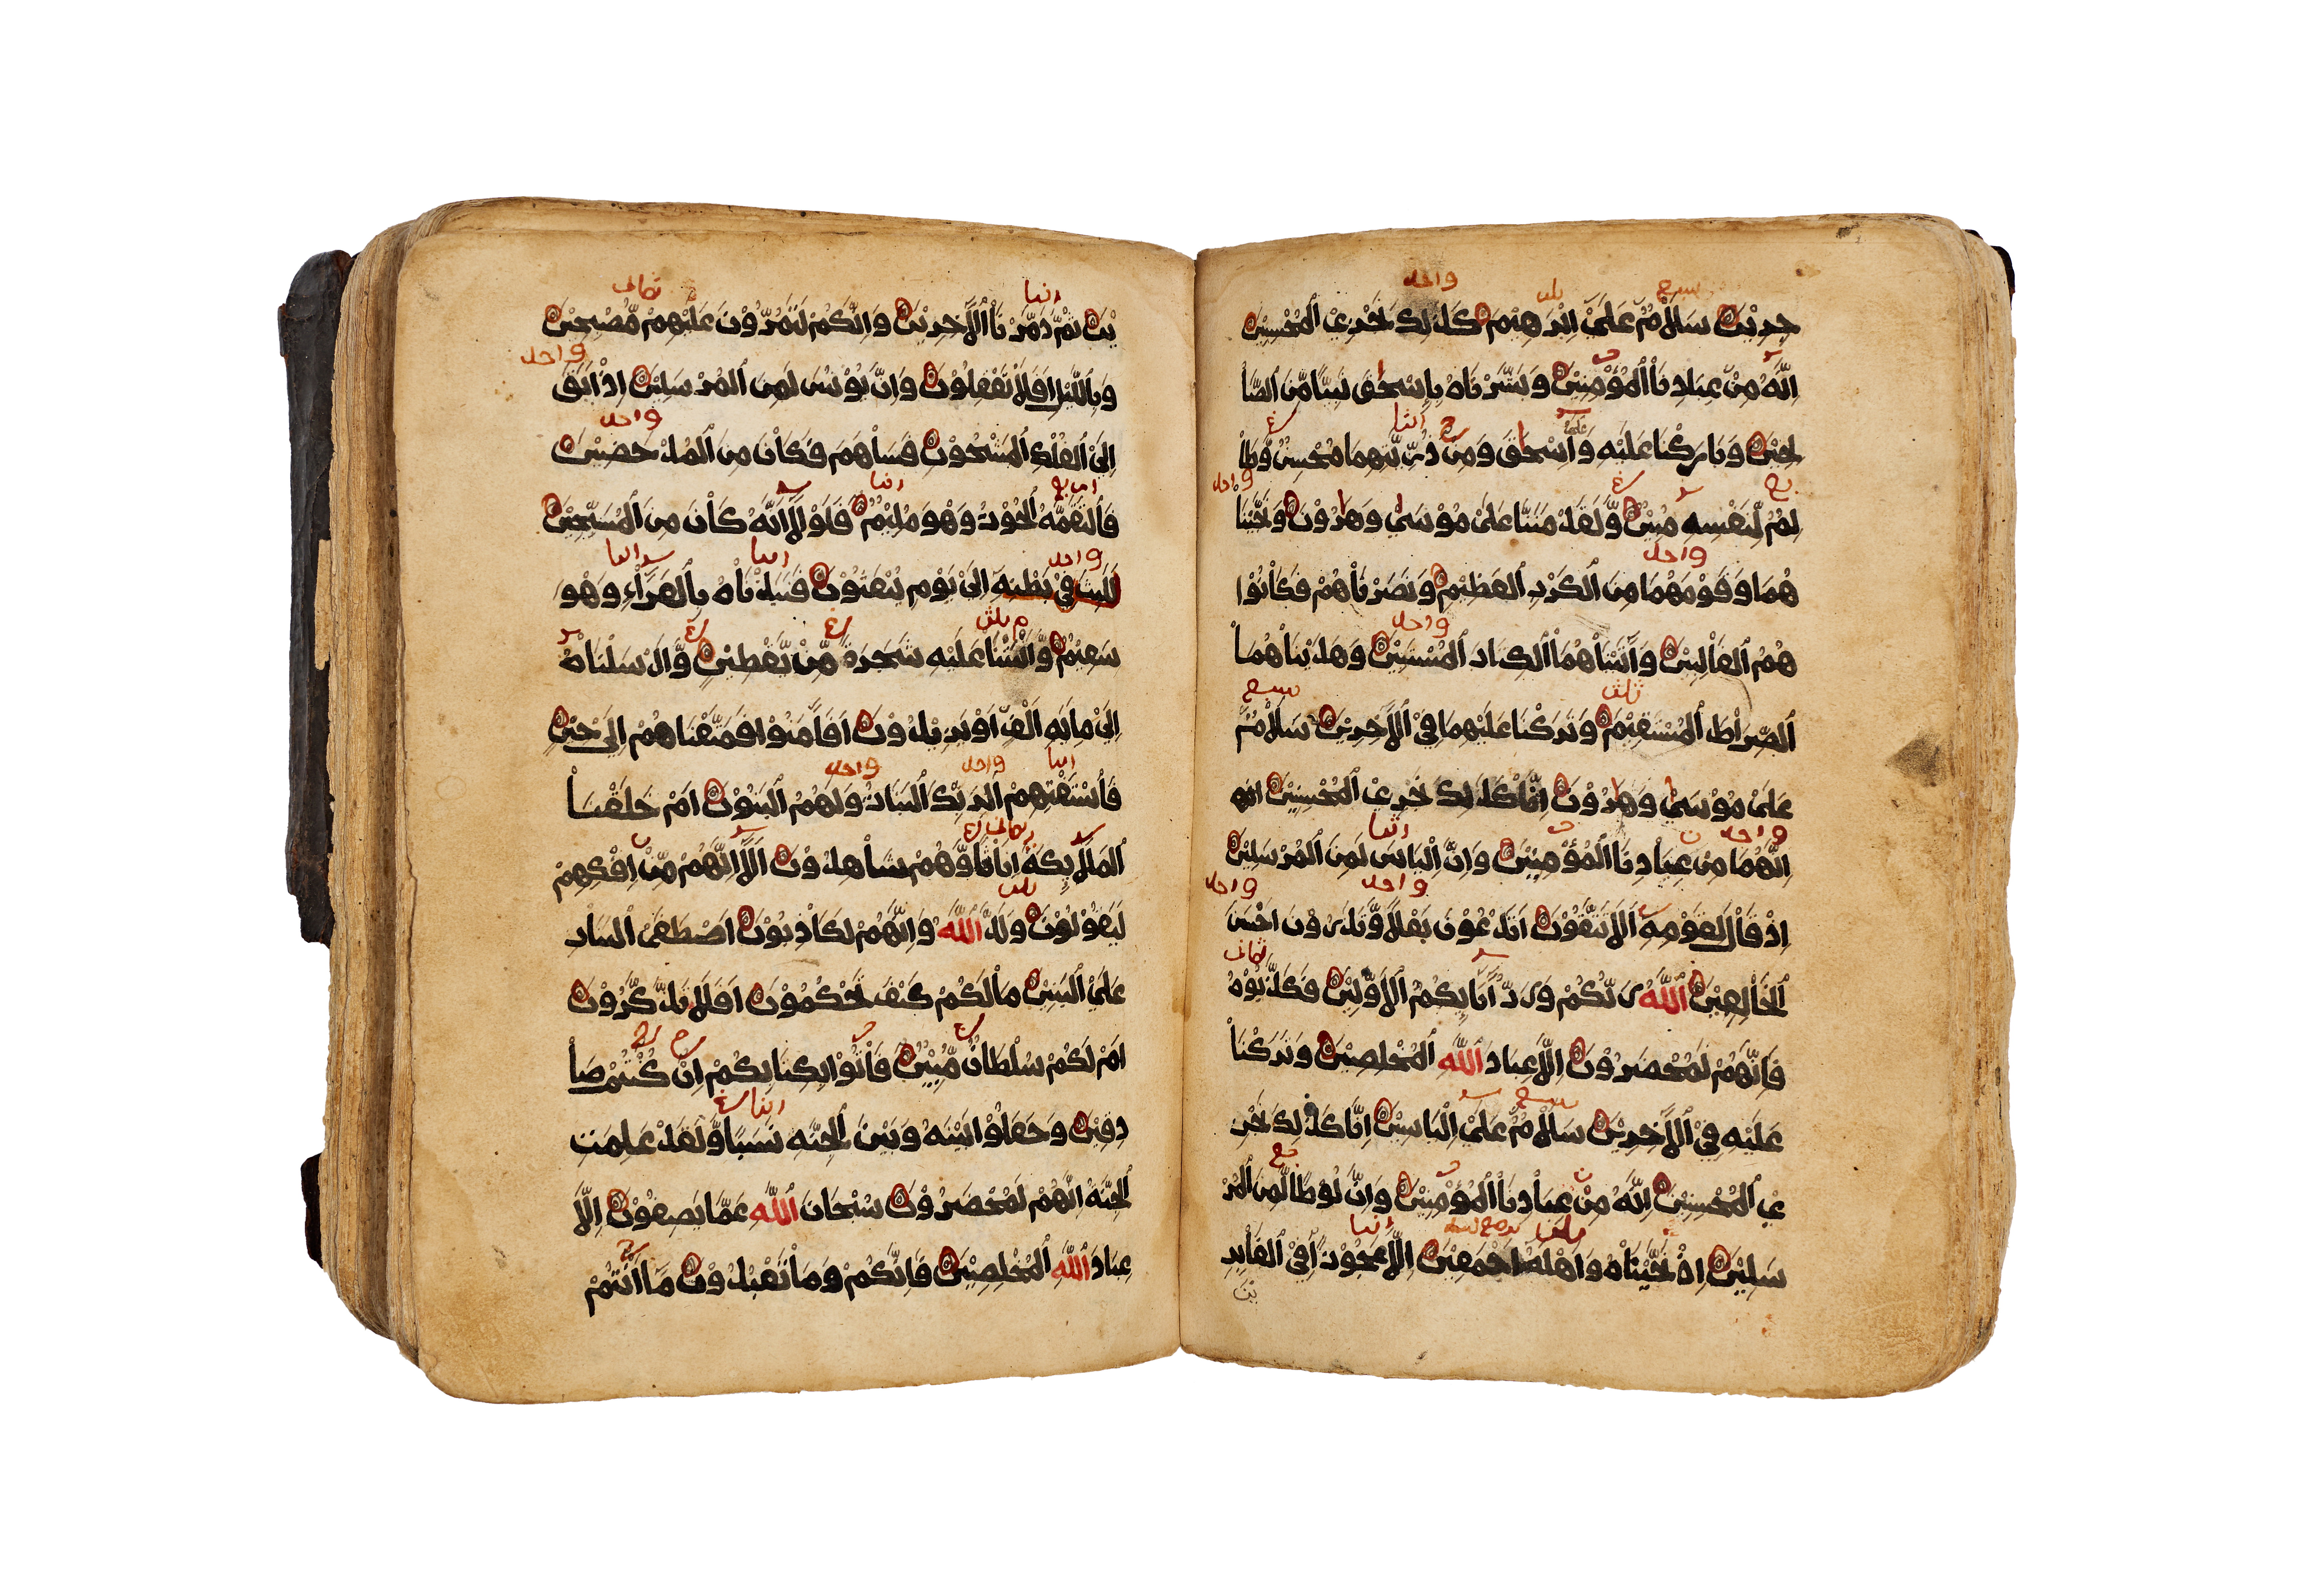 خِرِيْنَ سَلَاْمٌ عَلَىٓ اِبْرَهِيْمَ كَذَلِكَ نَجْزِيْ اَلْمُحْسِنِيْنَ
اِنَّهُ مِنْ عِبَادِنَاْ اَلْمُؤْمِنِيْنَ وَبَشَّرْنَاهُ بِاِسْحٰقَ نَبِيًّا مِّنَ اَلصَّاْ
لِحِيْنَ وَبَارَكْنَا عَلَيْهِ وَعَلَىٓ اِسْحٰقَ وَمِنْ ذُرِّيَّتِهِمَا مُحْسِنٌ وَّظَاْ
لِمٌ لِّنَفْسِهِ مُبِيْنٌ وَّلَقَدْ مَنَنَّا عَلَىْ مُوْسَىْ وَهٰرُوْنَ وَنَجَّيْنَاْ
هُمَا وَقَوْمَهُمَا مِنَ اَلْكَرْبِ اَلْعَظِيْمِ وَنَصَرْنَاْهُمْ فَكَاْنُوْا
هُمُ اَلْغَاْلِبِيْنَ وَآتَيْنَاْهُمَاْ اَلْكِتَابَ اَلْمُسْتَبِيْنَ وَهَدَيْنَاْهُمَاْ
اَلصِّرَاْطَ اَلْمُسْتَقِيْمَ وَتَرَكْنَا عَلَيْهِمَا فِيْ اَلْآخِرِيْنَ سَلَاْمٌ
عَلَىْ مُوْسَىْ وَهٰرُوْنَ اِنَّا كَذَلِكَ نَجْزِيْ اَلْمُحْسِنِيْنَ انه
اِنَّهُمَا مِنْ عِبَاْدِنَا اَلْمُؤْمِنِيْنَ وَاِنَّ اِلْيَاسَ لَمِنَ اَلْمُرْسَلِيْنَ
اِذْ قَاْلَ لِقَوْمِهِ اَلَا تَتَّقُوْنَ اَتَدْعُوْنَ بَعْلًا وَّتَذَرُوْنَ اَحْسَنَ
اَلْخَاْلِقِيْنَ اَللَّهُ رَبُّكُمْ وَرَبُّ آبَائِكُمُ اَلْاَوَّلِيْنَ فَكَذَّبُوْهُ
فَاِنَّهُمْ لَمُحْضَرُوْنَ اِلَّا عِبَادَ اَللَّهِ اَلْمُخْلِصِيْنَ وَتَرَكْنَاْ
عَلَيْهِ فِيْ اَلْآخِرِيْنَ سَلَاْمٌ عَلَىْ اِلْيَاسِيْنَ اِنَّا كَذَلِكَ نَجْزِ
يْ اَلْمُحْسِنِيْنَ اِنَّهُ مِنْ عِبَاْدِنَاْ اَلْمُؤْمِنِيْنَ وَاِنَّ لُوْطًا لَّمِنَ اَلْمُرْ
سَلِيْنَ اِذْ نَجَّيْنَاْهُ وَاَهْلَهُ اَجْمَعِيْنَ اِلَّا عَجُوْزًا فِيْ اَلْغَاْبِرِ
ين
يْنَ ثُمَّ دَمَّرْنَاْ اَلْآخَرِيْنَ وَاِنَّكُمْ لَتَمُرُّوْنَ عَلَيْهِمْ مُّصْبِحِيْنَ
وَبِاَللَّيْلِ اَفَلَاْ تَعْقِلُوْنَ وَاِنَّ يُوْنُسَ لَمِنَ اَلْمُرْسَلِيْنَ اِذْ اَبَقَ
اِلَى اَلْفُلْكِ اَلْمَشْحُوْنِ فَسَاْهَمَ فَكَاْنَ مِنَ اَلْمُدْحَضِيْنَ
فَاَلْتَقَمَهُ اَلْحُوْتُ وَهْوَ مُلِيْمٌ فَلَوْلَا اَنَّهُ كَاْنَ مِنَ اَلْمُسَبِّحِيْنَ
لَلَبِثَ فِيْ بَطْنِهِ اِلَىْ يَوْمِ يُبْعَثُوْنَ فَنَبَذْنَاْهُ بِاَلْعَرَاْءِ وَهْوَ
سَقِيْمٌ وَّاَنْبَتْنَا عَلَيْهِ شَجَرَةً مِّنْ يَّقْطِيْنٍ وَّاَرْسَلْنَاْهُ
اِلَىْ مِايَةِ اَلْفٍ اَوْ يَزِيْدُوْنَ فَآمَنُوْا فَمَتَّعْنَاهُمْ اِلَىْ حِيْنٍ
فَاَسْتَفْتِهِمْ اَلِرَبِّكَ اَلْبَنَاتُ وَلَهُمُ اَلْبَنُوْنَ اَمْ خَلَقْنَاْ
اَلْمَلَاْئِكَةَ اِنَاْثًا وَّهُمْ شَاْهِدُوْنَ اَلَا اِنَّهُمْ مِّنْ اِفْكِهِمْ
لَيَقُوْلُوْنَ وَلَدَ اَللَّهُ وَاِنَّهُمْ لَكَاْذِبُوْنَ اَصْطَفَى اَلْبَنَاْتِ
عَلَىْ اَلْبَنِيْنَ مَاْلَكُمْ كَيْفَ تَحْكُمُوْنَ اَفَلَا تَذَّكَّرُوْنَ
اَمْ لَكُمْ سُلْطَانٌ مُّبِيْنٌ فَاْتُوْا بِكِتَابِكُمْ اِنْ كُنْتُمْ صَاْ
دِقِيْنَ وَجَعَلُوْا بَيْنَهُ وَبَيْنَ اَلْجِنَّةِ نَسَبًا وَّلَقَدْ عَلِمَتِ
اَلْجِنَّةُ اِنَّهُمْ لَمُحْضَرُوْنَ سُبْحَانَ اَللَّهِ عَمَّا يَصِفُوْنَ اِلَّا
عِبَادَ اَللَّهِ اَلْمُخْلِصِيْنَ فَاِنَّكُمْ وَمَا تَعْبُدُوْنَ مَا اَنْتُمْ